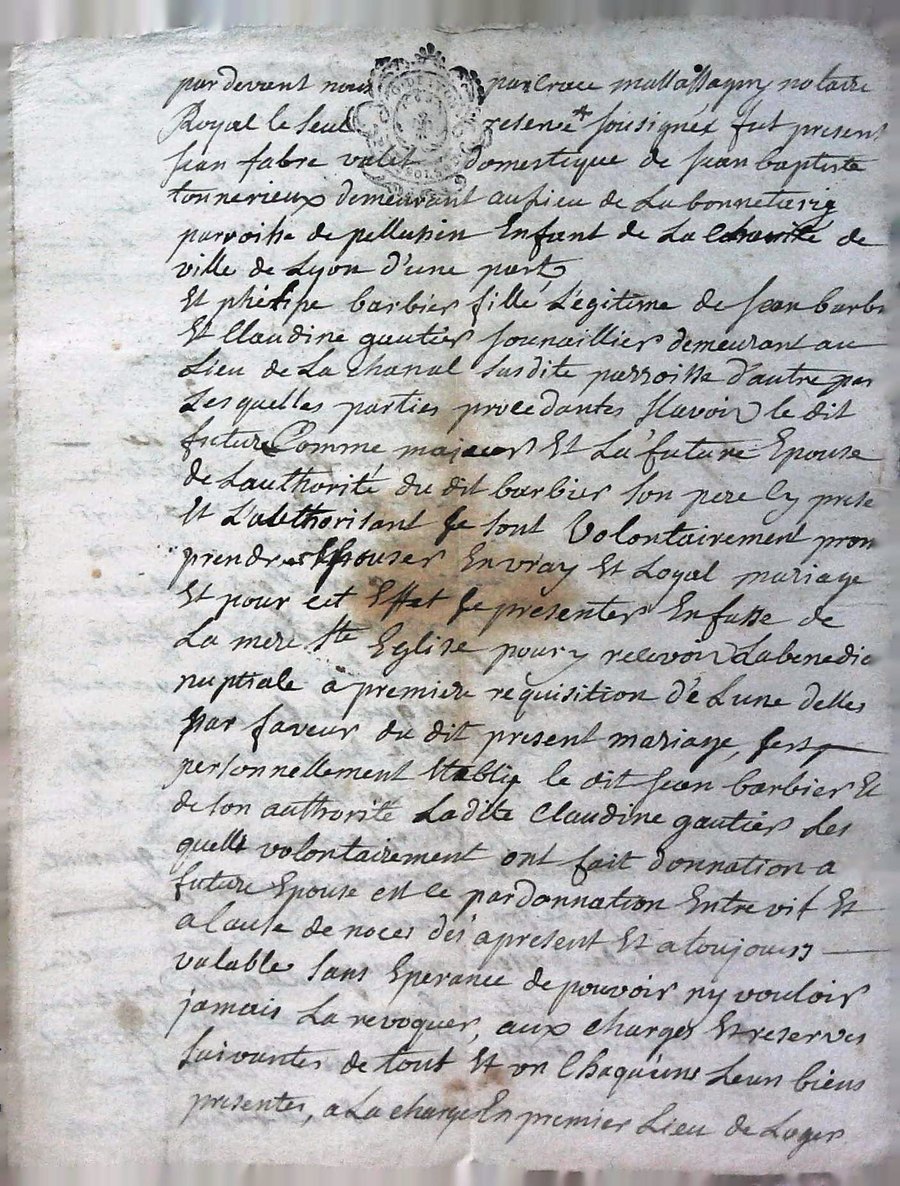 par devant nous pancrace mallassagny notaire
Royal le seul reserve sousignés fut present
Jean fabre valet domestique de Jean baptiste
tonnerieux demeurant au lieu de La bonnetarig
parroisse de pellussin Enfant de La Charité de
ville de Lyon d'une part,
Et phelipe barbier fille Légitime de Jean barbi
Et Claudine gautier Journaillier demeurant au
Lieu de La chanal susdite parroisse d'autre par
Lesquelles parties procedantes sçavoir le dit
future Comme majeur Et La future Epouse
de Lauthorité du dit barbier son pere Cy prese
Et L'authorisant se sont Volontairement prom
prendre Et Epouser En vray Et Loyal mariage
Et pour cet Effet se présenter En fasse de
La mere Ste Eglise pour y recevoir La benedic
nuptiale à premiere requisition de Lune delles
par faveur du dit present mariage, sest
personnellement Etablie le dit Jean barbier Et
de son authorité Ladite Claudine gautier Les
quelle volontairement ont fait donnation a
future Epouse est ce par donnation Entre vif Et
a Cause de noces dés apresent Et a toujours
valable sans Eperance de pouvoir ny vouloir
jamais La revoquer, aux charges Et reserves
suivantes de tout Et un Chaqu'une Leur biens
presentes, a La charge En premier Lieu de Loger